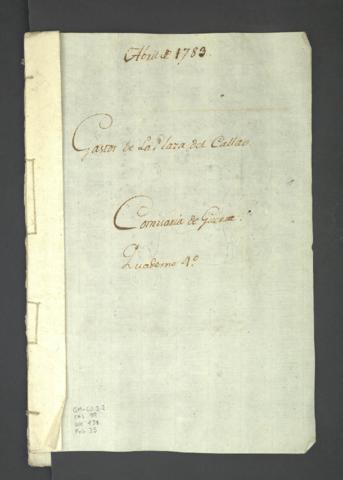 Abril de 1783.
Gastos de La Plaza del Callao.
Comisaria de Guerra.
Quaderno 4º
GM-CO 2.2